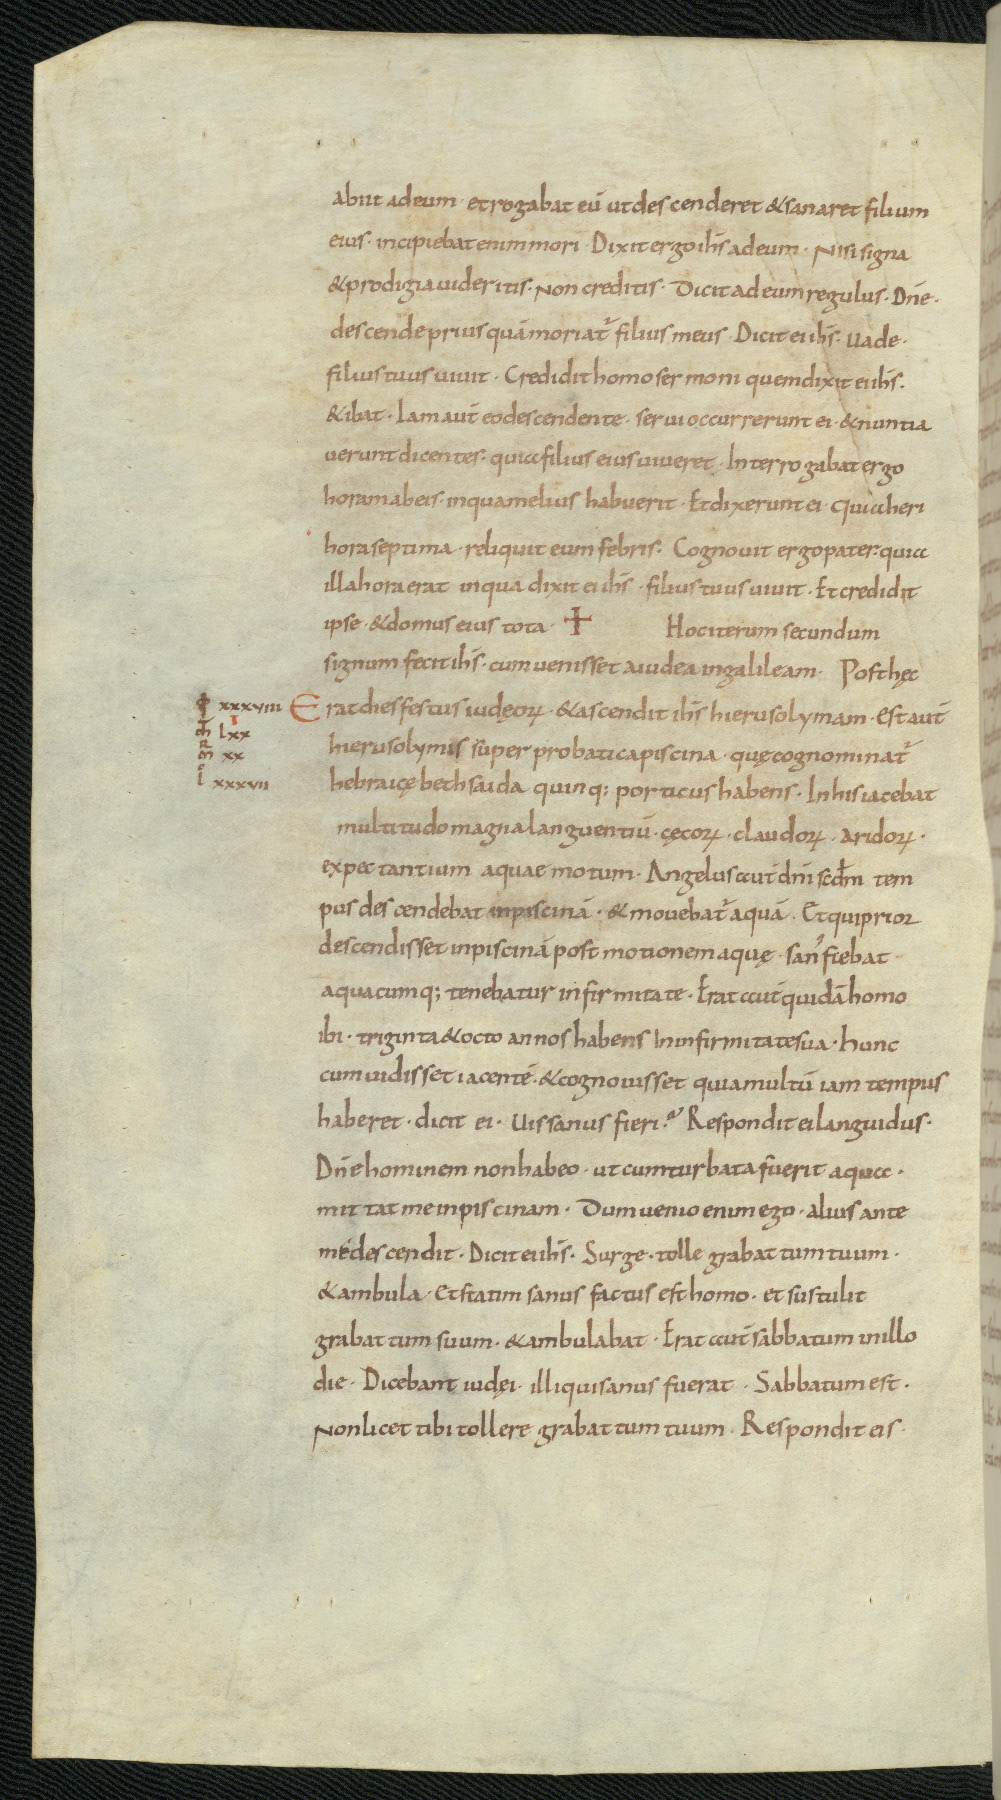 abiit ad eum · et rogabat eū ut descenderet & sanaret filium
eius · incipiebat enim mori · Dixit ergo ihs̄ ad eum · Nisi signa
& prodigia uideritis · non creditis · Dicit ad eum regulus · Dn̄e ·
descende priusquā moriat᷒ filius meus · Dicit ei ihs̄ · Uade ·
filius tuus uiuit · Credidit homo sermoni quem dixit ei ihs̄ ·
& ibat · Iam aut̄ eo descendente · serui occurrerunt ei · & nuntia
uerunt dicentes · quia filius eius uiueret · Interrogabat ergo
horam ab eis · in qua melius habuerit · Et dixerunt ei · Quia heri
hora septima · reliquit eum febris · Cognouit ergo pater · quia
illa hora erat in qua dixit ei ihs̄ · filius tuus uiuit · Et credidit
ipse · & domus eius tota · + Hoc iterum secundum
signum fecit ihs̄ · cum uenisset a iudea in galileam · Post hęc
xxxviii Erat dies festus iudęoꝝ · & ascendit ihs̄ hierusolymam · Est aut̄
m̄ i lxx
hierusolymis super probatica piscina · quę cognominat᷒
m̄ xx
hebraicę bethsaida quinq; porticus habens · In his iacebat
l xxxvii
multitudo magna languentiū · cęcoꝝ · claudoꝝ · aridoꝝ ·
expectantium aquae motum · Angelus aut̄ dn̄i scd̄m tem
pus descendebat in piscinā · & mouebat᷒ aquā · Et qui prior
descendisset in piscinā post motionem aquę · san᾿ fiebat
a quacumq; tenebatur infirmitate · Erat aut̄ quidā homo
ibi · triginta & octo annos habens in infirmitate sua · Hunc
cum uidisset iacentē · & cognouisset quia multū iam tempus
haberet · dicit ei · Uis sanus fieri ? Respondit ei languidus ·
Dn̄e hominem non habeo · ut cum turbata fuerit aqua ·
mittat me in piscinam · Dum uenio enim ego · alius ante
me descendit · Dicit ei ihs̄ · Surge · tolle grabattum tuum ·
& ambula · Et statim sanus factus est homo · et sustulit
grabattum suum · & ambulabat · Erat aut̄ sabbatum in illo
die · Dicebant iudęi · illi qui sanus fuerat · Sabbatum est ·
Non licet tibi tollere grabattum tuum · Respondit eis ·